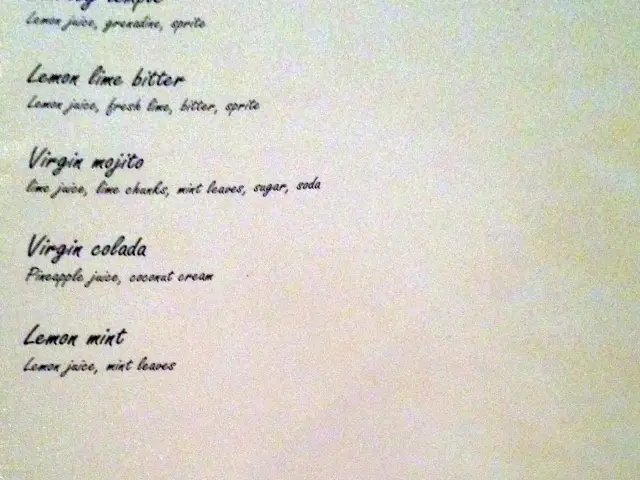 Lemon juice, grenadine, sprite
Lemon lime bitter
Lemon juice, fresh lime, bitter, sprite
Virgin mojito
lime juice, lime chunks, mint leaves, sugar, soda
Virgin colada
Pineapple juice, coconut cream
Lemon mint
Lemon juice, mint leaves